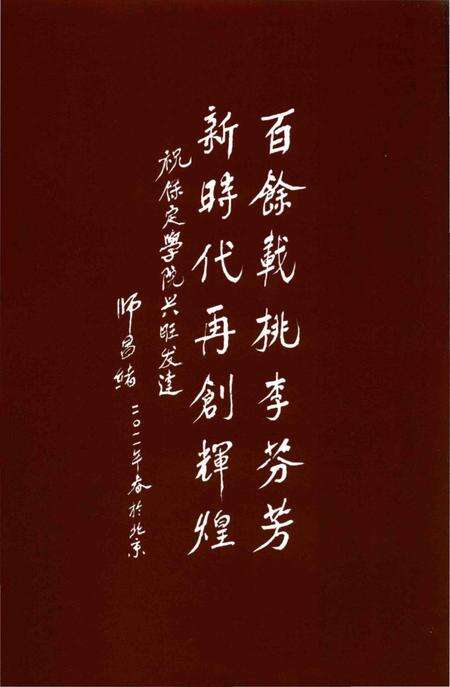 百餘載桃李芬芳
新時代再創輝煌
祝保定學院兴旺发达
师昌緒 二〇一一年春於北京